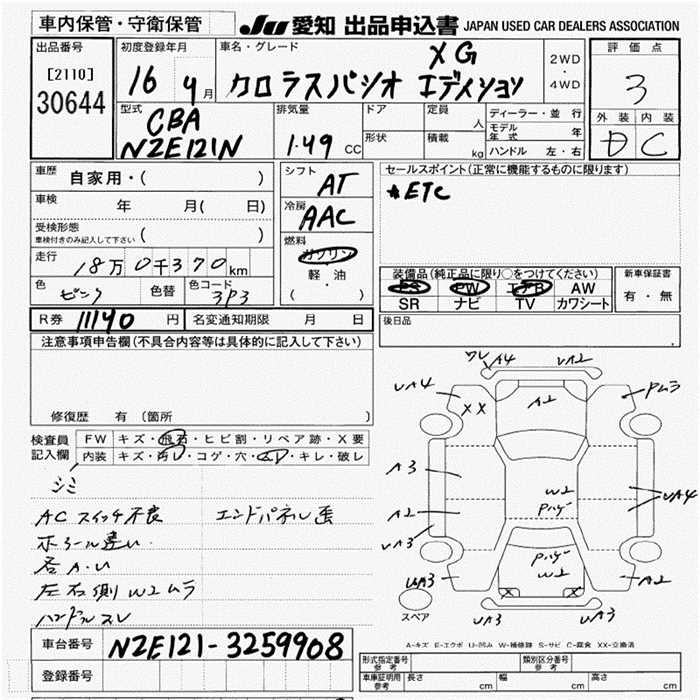 車内保管・守衛保管
JU 愛知 出品申込書 JAPAN USED CAR DEALERS ASSOCIATION
出品番号
[2110]
30644
初度登録年月
16 4月
車名・グレード
XG
カロラスパシオ エディション
2WD
・
4WD
評価点
3
外装 内装
D C
型式
CBA
NZE121N
排気量
1.49 CC
ドア
形状
定員 人
積載 kg
ディーラー・並行
モデル年式 年
ハンドル 左・右
車歴 自家用・( )
車検 年 月( 日)
受検形態
車検付きのみ記入して下さい ( )
走行 18万0千370km
色 ピンク 色替 色コード 3P3
シフト AT
冷房 AAC
燃料
ガソリン
軽・油
( ・ )
セールスポイント(正常に機能するものに限ります)
*ETC
装備品(純正品に限り○をつけてください)
PS PW エアB AW
SR ナビ TV カワシート
新車保証書
有・無
R券 11140 円 名変通知期限 月 日
後日品
注意事項申告欄(不具合内容等は具体的に記入して下さい)
修復歴 有 (箇所 )
検査員記入欄
FW キズ・飛石・ヒビ割・リペア跡・X要
内装 キズ・汚レ・コゲ・穴・ムレ・キレ・破レ
シミ
ACスイッチ不良 エンドパネル歪
ホイール違い
各A・U
左右側W2ムラ
ハンドルスレ
ワレ A4 UA2
UA4 XX A2 Pムラ
A3
A2 W2 UA4
Pハゲ
UA3 Pハゲ
W2
UA3 X X A2
UA3 UA3
スペア
A-キズ E-エクボ U-凹み W-補修跡 S-サビ C-腐食 XX-交換済
車台番号 NZE121-3259908
登録番号
形式指定番号 参考 類別区分番号 参考
車庫証明用 参考 長さ cm 幅 cm 高さ cm